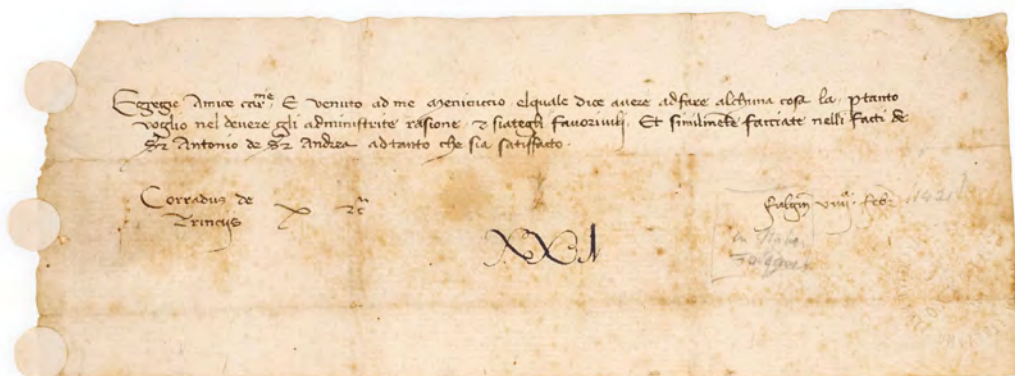 Egregie Amice car^me. E venuto ad me Menicuccio elquale dice avere adfare alchuna cosa la. ptanto
voglio nel devere gli administrite rasione & siategli favorivili. Et similmēte facciate nelli facti de
Sr Antonio de Sr Andrea adtanto che sia satisfacto.
Corradus de
Trinciis
fulginei viiij. febr 1421
XXI